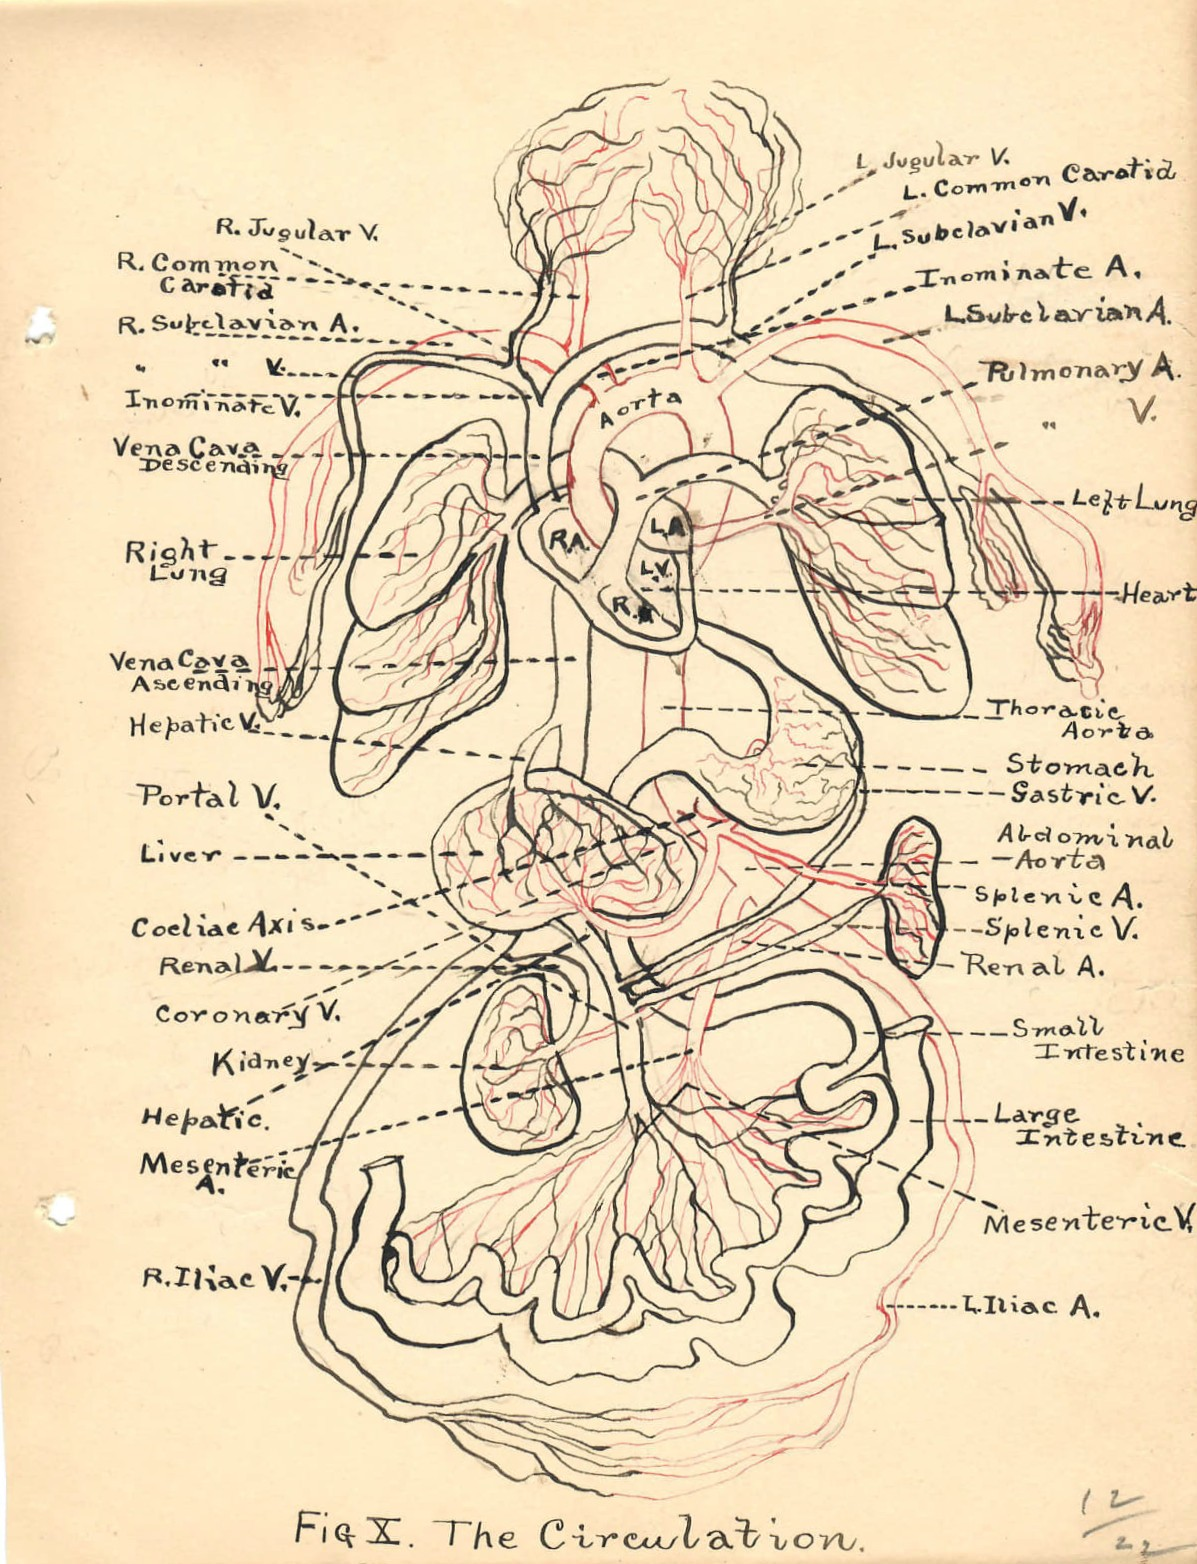 R. Jugular V.
R. Common
Carotid
R. Subclavian A.
" " V.
Inominate V.
Vena Cava
Descending
Right
Lung
Vena Cava
Ascending
Hepatic V.
Portal V.
Liver
Coeliac Axis
Renal V.
Coronary V.
Kidney
Hepatic.
Mesenteric
A.
R. Iliac V.
L. Jugular V.
L. Common Carotid
L. Subclavian V.
Inominate A.
L. Subclavian A.
Pulmonary A.
" V.
Left Lung
Heart
Thoracic
Aorta
Stomach
Gastric V.
Abdominal
Aorta
Splenic A.
Splenic V.
Renal A.
Small
Intestine
Large
Intestine
Mesenteric V.
L. Iliac A.
Aorta
R.A.
L.A.
L.V.
Fig X. The Circulation.
12
22